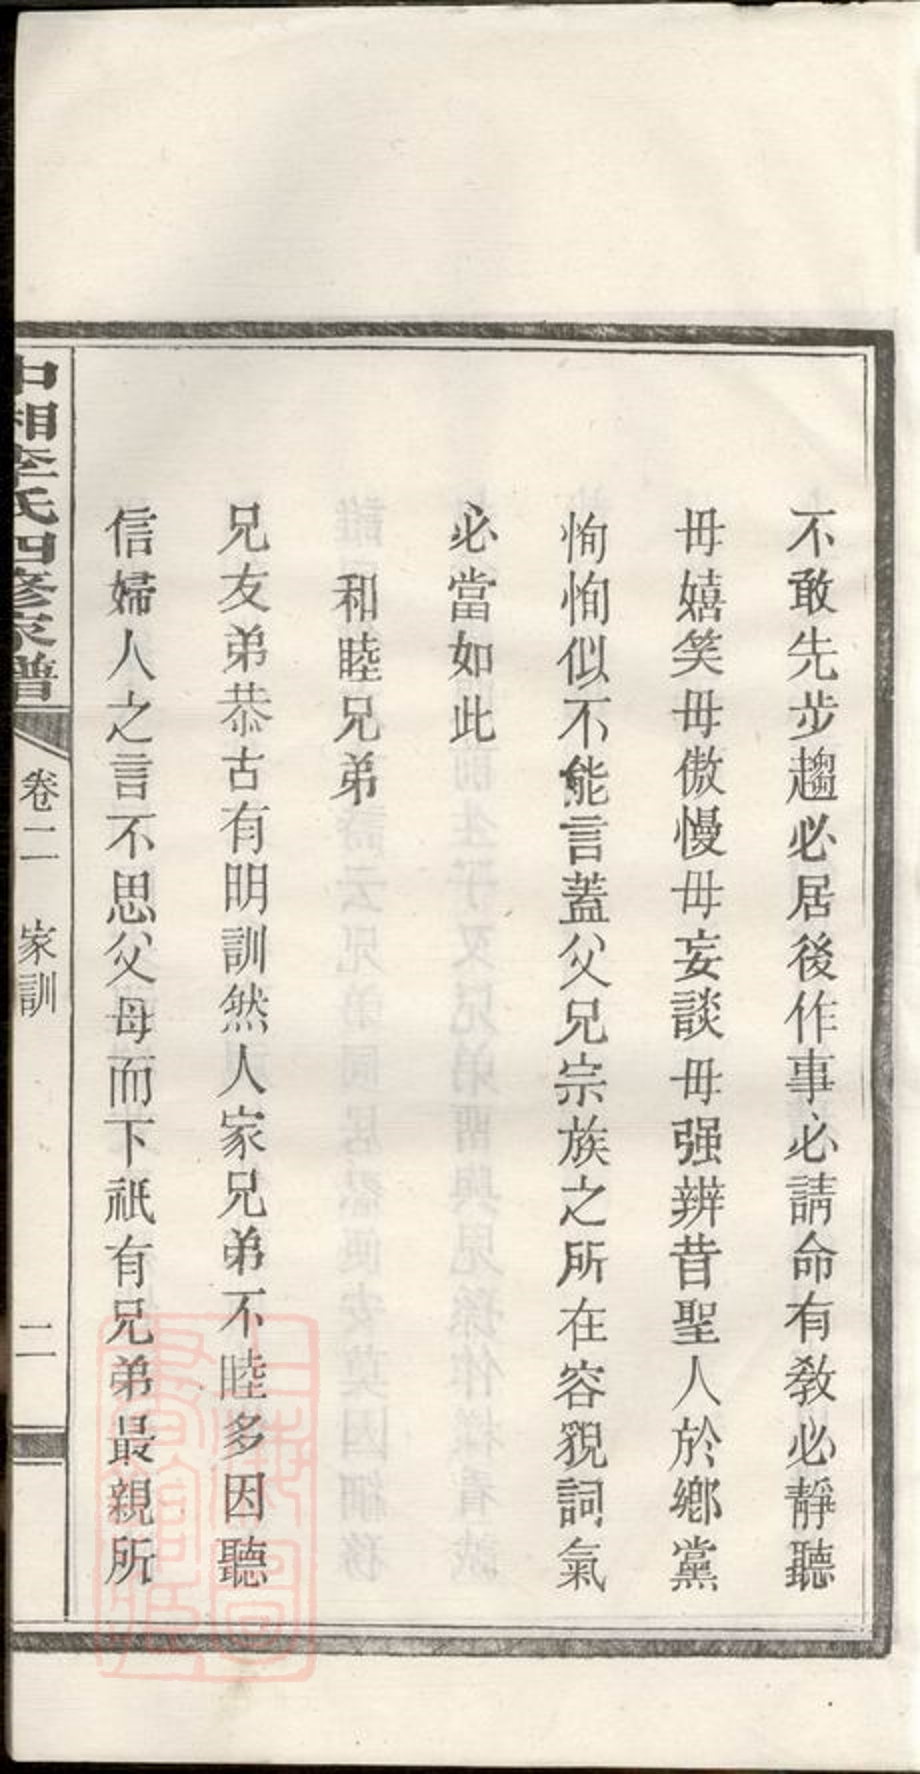 不敢先步趨必居後作事必請命有教必靜聽
毋嬉笑毋傲慢毋妄談毋强辨昔聖人於鄉黨
恂恂似不能言蓋父兄宗族之所在容貌詞氣
必當如此
和睦兄弟
兄友弟恭古有明訓然人家兄弟不睦多因聽
信婦人之言不思父母而下祇有兄弟最親所
中湘李氏四修家譜
卷二 家訓
二